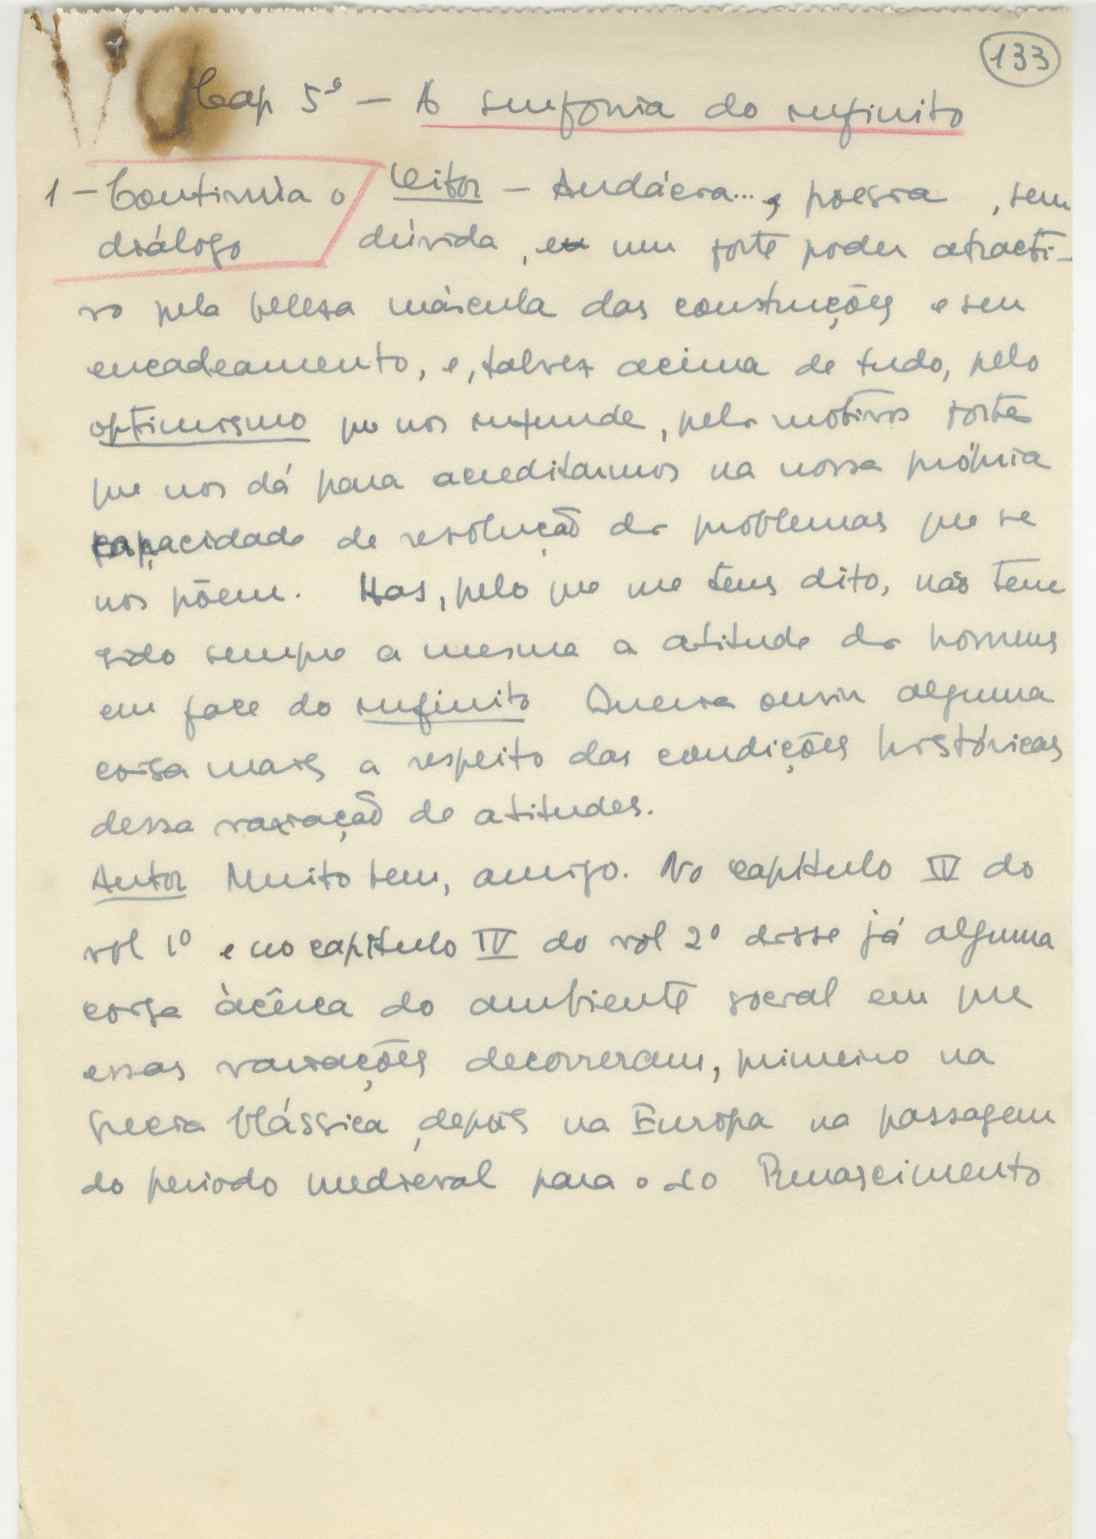 133
Cap 5º — A sinfonia do infinito
1 – Continúa o
diálogo
Leitor — Audácia... , poesia , sem
dúvida , um forte poder atracti-
vo pela beleza máscula das construções e seu
encadeamento, e, talvez acima de tudo, pelo
optimismo que nos infunde, pelo motivo forte
que nos dá para acreditarmos na nossa própria
capacidade de resolução dos problemas que se
nos põem. Mas, pelo que me tens dito, não tem
sido sempre a mesma a atitude dos homens
em face do infinito Queria ouvir alguma
coisa mais a respeito das condições históricas
dessa variação de atitudes.
Autor Muito bem, amigo. No capítulo IV do
vol 1º e no capítulo IV do vol 2º disse já alguma
coisa àcêrca do ambiente social em que
essas variações decorreram, primeiro na
Grecia Clássica, depois na Europa na passagem
do periodo medieval para o do Renascimento